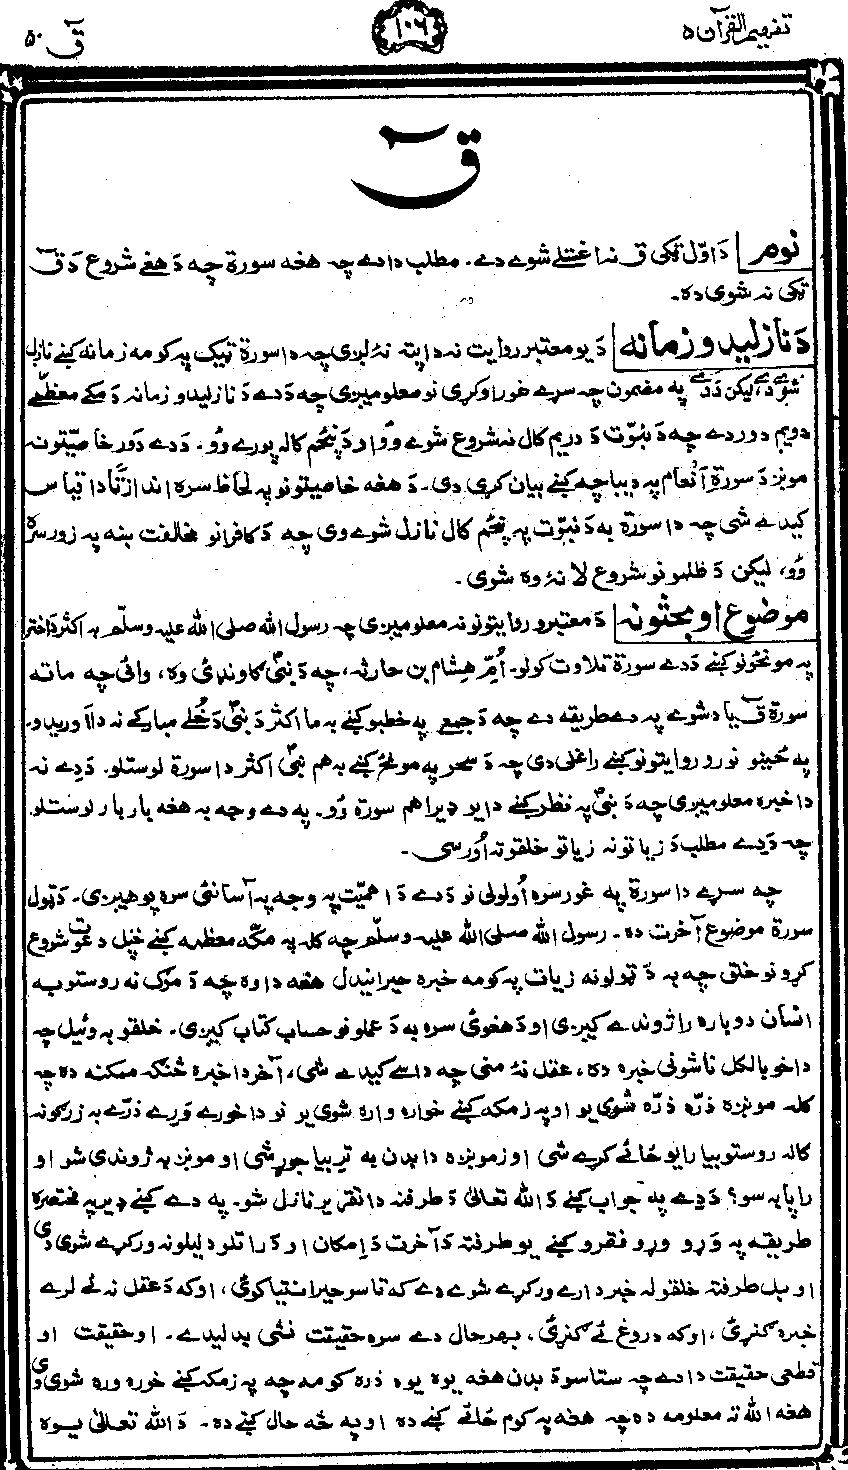 تفهیم القرآن ۵
۱۰۶
قٓ ۵۰
قٓ
نوم دَ اوّل ټکی ق نه اغستلے شوے دے۔ مطلب دا دے چه هغه سورة چه دَ هغے شروع دَ قٓ
ټکی نه شوی ده۔
دَ نازلیدو زمانه دَ یو معتبر روایت نه دا پته نۀ لږی چه دا سورة ټیک په کومه زمانه کښے نازل
شوے دے، لیکن دَ دے په مضمون چه سړے غور اوکړی نو معلومیږی چه دَ دے دَ نازلیدو زمانه دَ مکے معظمے
دویم دور دے چه دَ نبوّت دَ دریم کال نه شروع شوے وُو او دَ پنځم کاله پورے وُو۔ دَ دے دَور خاصیّتونه
مونږ دَ سورة اَنعام په دیباچه کښے بیان کړی دی۔ دَ هغه خاصیتونو په لحاظ سره اندازتًا دا قیاس
کیدے شی چه دا سورة به دَ نبوّت په پنځم کال نازل شوے وی چه دَ کافرانو مخالفت ښه په زور سره
وُو، لیکن دَ ظلمونو شروع لا نۀ وه شوی۔
موضوع او بحثونه دَ معتبرو روایتونو نه معلومیږی چه رسول الله صلی الله علیه وسلّم به اکثر دَ اختر
په مونځونو کښے دَ دے سورة تلاوت کولو۔ اُمِّ هشام بن حارثه، چه دَ نبیؐ ګاونډئ وه، وائی چه ماته
سورة قٓ یاد شوے په دے طریقه دے چه دَ جمعے په خطبو کښے به ما اکثر دَ نبیؐ دَ خُلے مبارکے نه دا آوریدو۔
په ځینو نورو روایتونو کښے راغلی دی چه دَ سحر په مونځ کښے به هم نبیؐ اکثر دا سورة لوستلو۔ دَ دے نه
دا خبره معلومیږی چه دَ نبیؐ په نظر کښے دا یو ډیر اهم سورة وُو۔ په دے وجه به هغه بار بار لوستلو
چه دَ دے مطلب دَ زیاتو نه زیاتو خلقو ته اُورسی۔
چه سړے دا سورة په غور سره اُولولی نو دَ دے دَ اهمیّت په وجه په آسانئ سره پوهیږی۔ دَ ټول
سورة موضوع آخرت ده۔ رسول الله صلی الله علیه وسلّم چه کله په مکّه معظمه کښے خپل دعوت شروع
کړو نو خلق چه به دَ ټولو نه زیات په کومه خبره حیرانیدل هغه دا وه چه دَ مرګ نه روستو به
انسان دوباره راژوندے کیږی او دَ هغوئ سره به دَ عملونو حساب کتاب کیږی۔ خلقو به وئیل چه
دا خو بالکل ناشونی خبره ده، عقل نۀ منی چه داسے کیدے شی، آخر دا خبره څنګه ممکنه ده چه
کله مونږه ذرّه ذرّه شوی یو او په زمکه کښے خواره واره شوی یو نو دا خورے وَرے ذرّے به زرګونه
کاله روستو بیا را یو ځائے کړے شی او زمونږه دا بدن به تر بیا جوړ شی او مونږ به ژوندی شو او
را پا به سو؟ دَ دے په جواب کښے دَ الله تعالیٰ دَ طرفنه دا تقریر نازل شو۔ په دے کښے ډیر په مختصره
طریقه په وَړو وړو فقرو کښے یو طرفته دَ آخرت دَ اِمکان او دَ راتلو دلیلونه ورکړے شوی دی
او بل طرفته خلقو له خبردارے ورکړے شوے دے که تاسو حیرانتیا کوئ، او که دَ عقل نه ئے لرے
خبره ګنړئ، او که دروغ ئے ګنړئ، بهرحال دے سره حقیقت نشی بدلیدے۔ او حقیقت او
قطعی حقیقت دا دے چه ستاسو دَ بدن هغه یوه یوه ذره کومه چه په زمکه کښے خوره وره شوی وی
هغه الله ته معلومه ده چه هغه په کوم ځائے کښے ده او په څه حال کښے ده۔ دَ الله تعالیٰ یوه